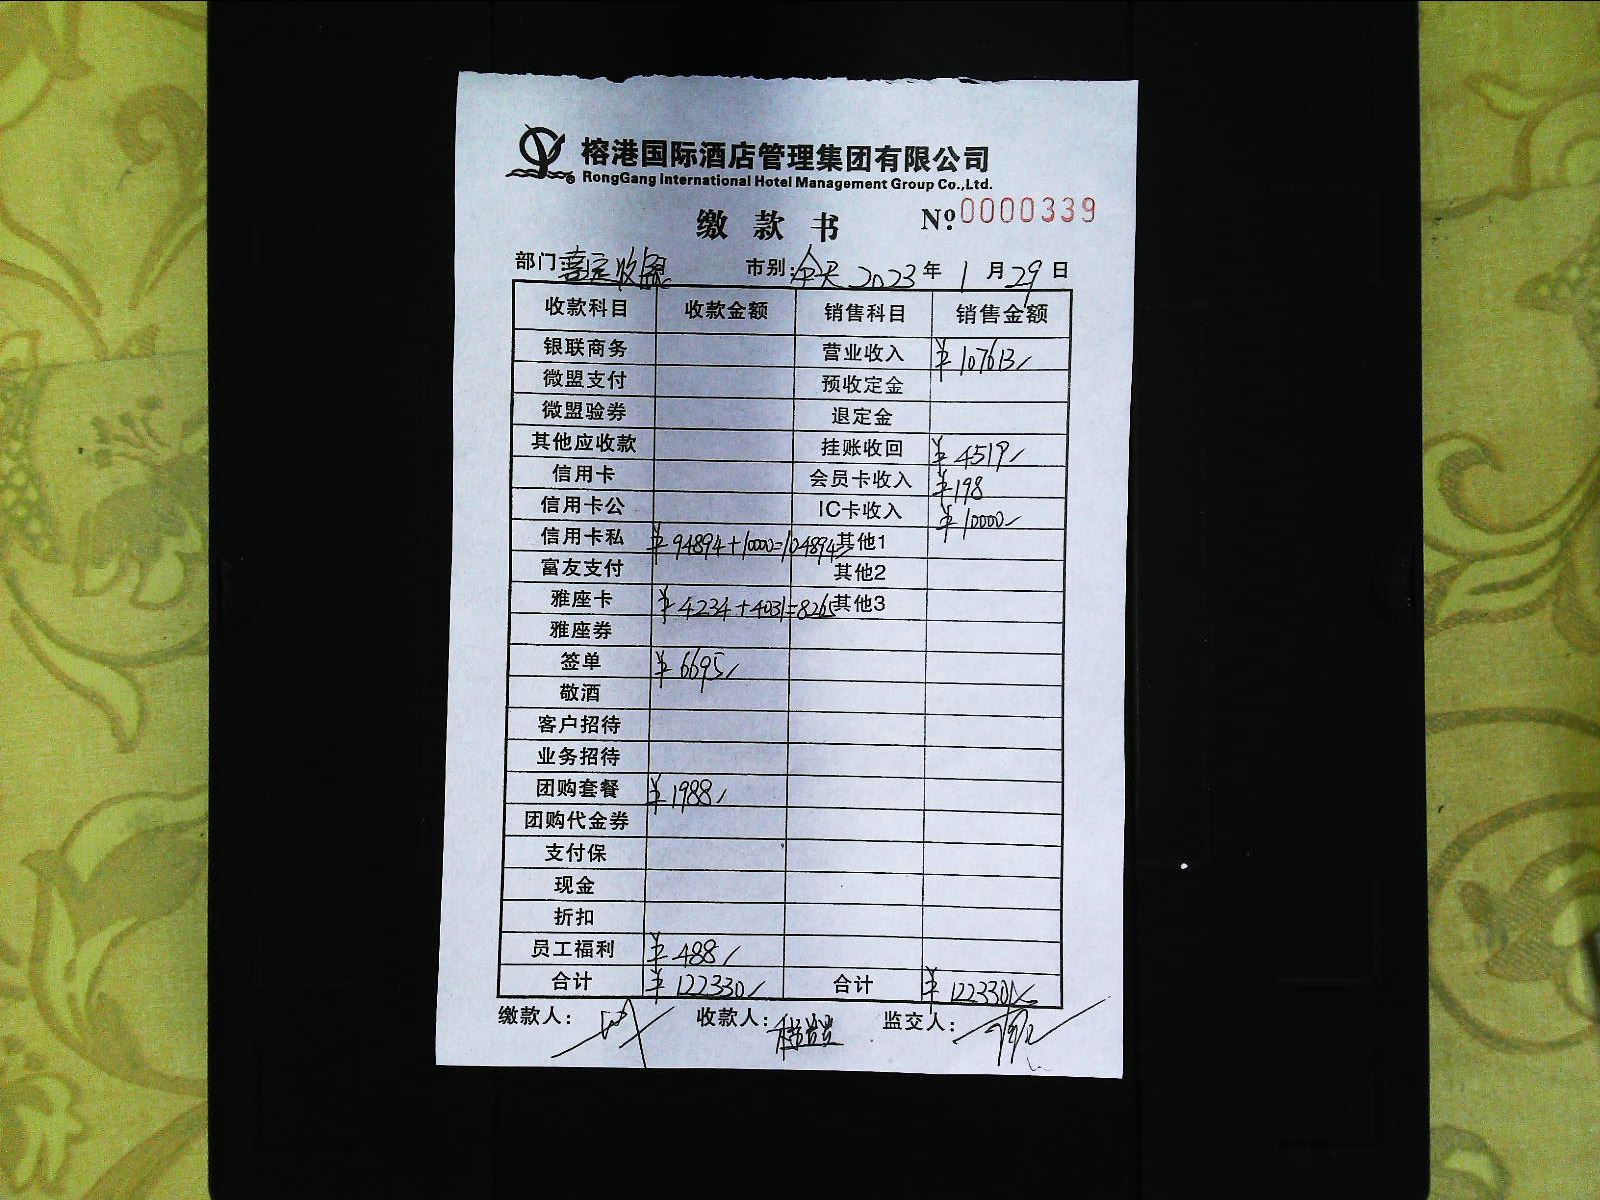 榕港国际酒店管理集团有限公司
RongGang International Hotel Management Group Co.,Ltd.
缴款书 №:0000339
部门:嘉定收银 市别:全天 2023年1月29日
收款科目 收款金额 销售科目 销售金额
银联商务 营业收入 ¥107613/
微盟支付 预收定金
微盟验券 退定金
其他应收款 挂账收回 ¥4519/
信用卡 会员卡收入 ¥198
信用卡公 IC卡收入 ¥10000/
信用卡私 ¥94894+10000=104894 其他1
富友支付 其他2
雅座卡 ¥4234+4031=8265 其他3
雅座券
签单 ¥6695/
敬酒
客户招待
业务招待
团购套餐 ¥1988/
团购代金券
支付保
现金
折扣
员工福利 ¥488/
合计 ¥122330/ 合计 ¥122330/
缴款人: 收款人: 监交人: